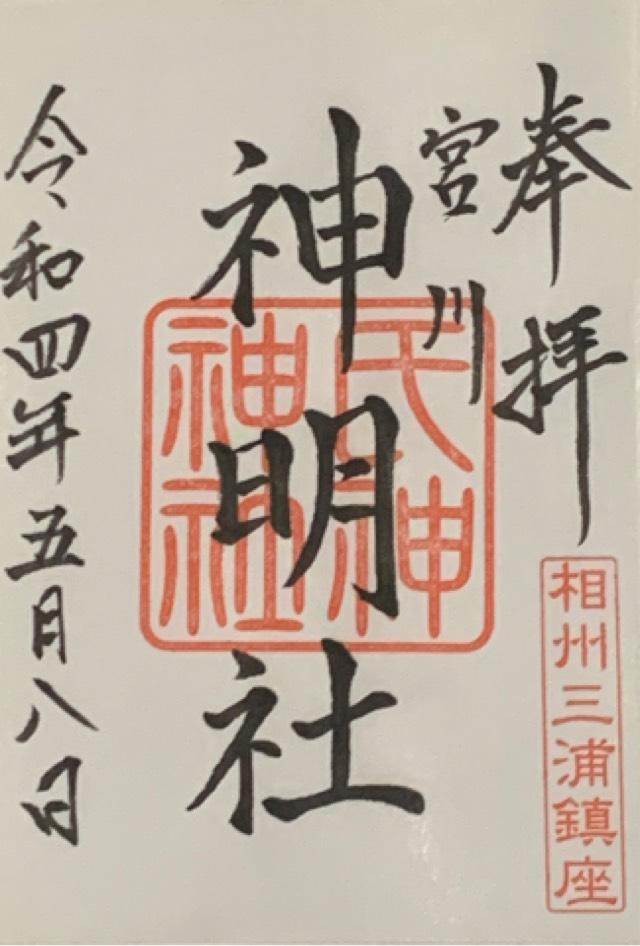 奉拝
相州三浦鎮座
宮川
神明社
氏神
神社
令和四年五月八日